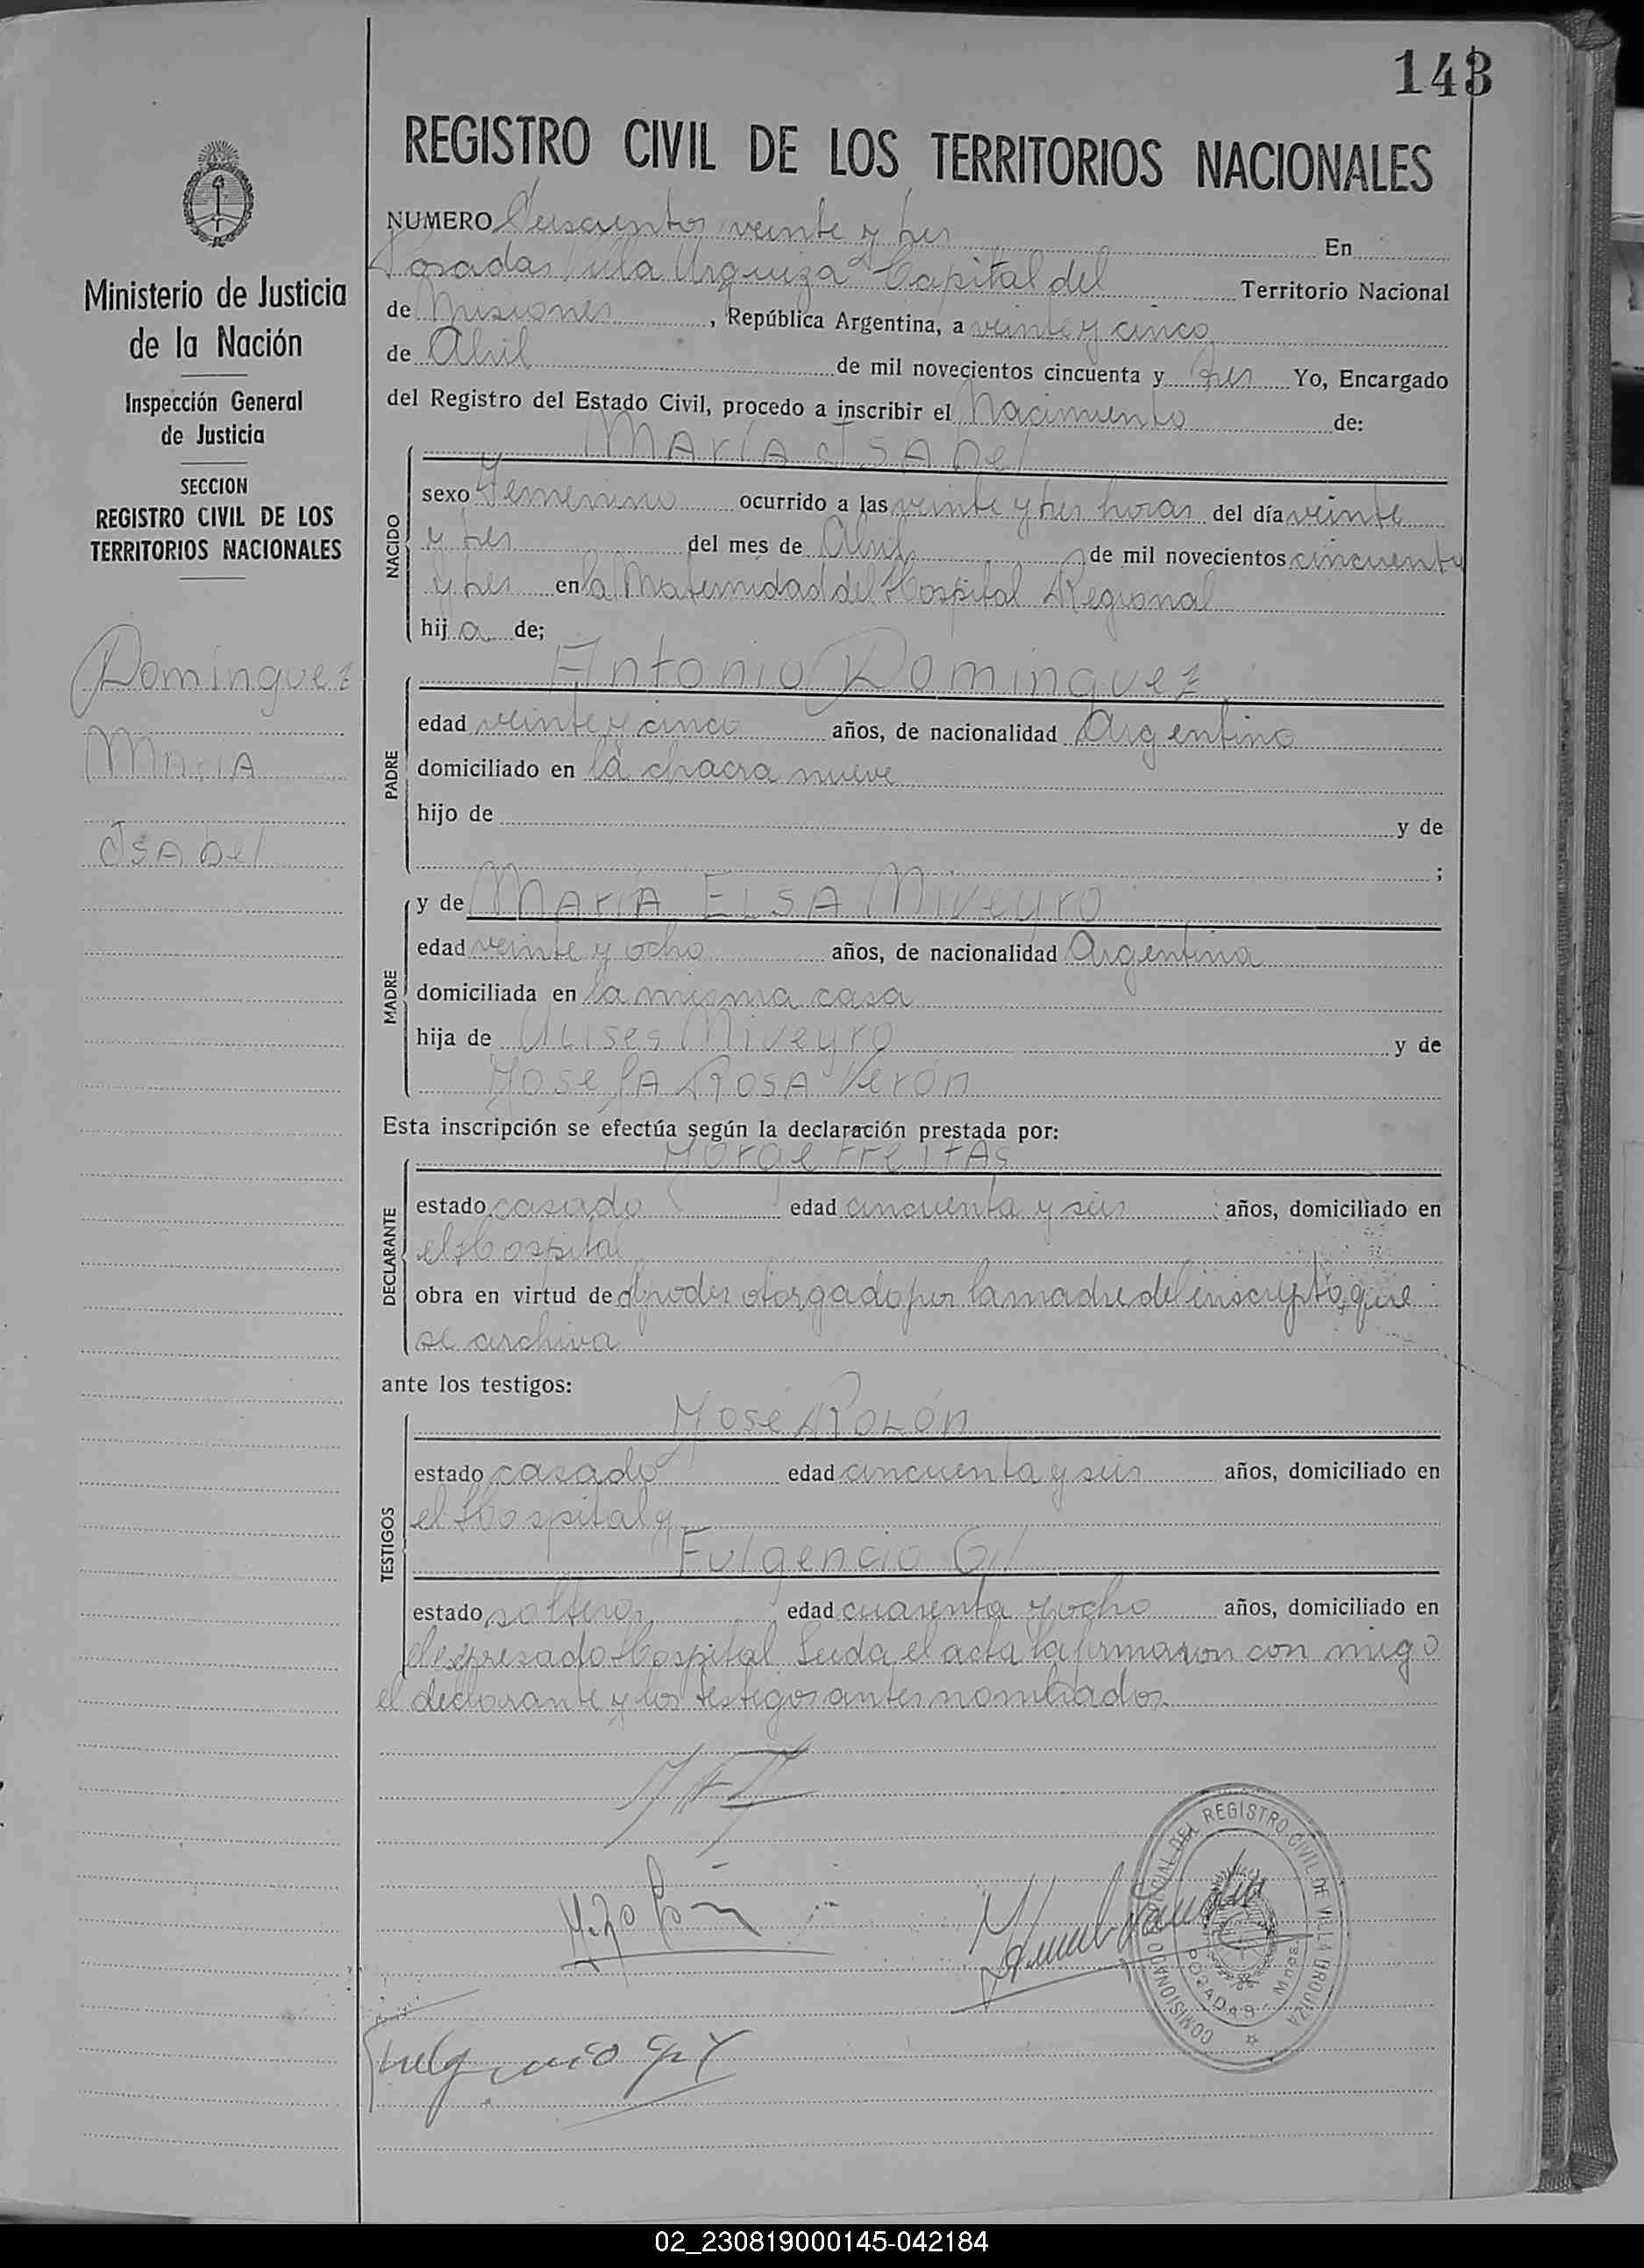 143
REGISTRO CIVIL DE LOS TERRITORIOS NACIONALES
Ministerio de Justicia
de la Nación
Inspección General
de Justicia
SECCION
REGISTRO CIVIL DE LOS
TERRITORIOS NACIONALES
Dominguez
María
Isabel
NUMERO veinte y tres En
Posadas Villa Urquiza Capital del Territorio Nacional
de Misiones, República Argentina, a veinte y cinco
de Abril de mil novecientos cincuenta y tres Yo, Encargado
del Registro del Estado Civil, procedo a inscribir el Nacimiento de:
María Isabel
NACIDO
sexo Femenino ocurrido a las veinte y tres horas del día veinte
y tres del mes de Abril de mil novecientos cincuenta
y tres en la Maternidad del Hospital Regional
hija de;
Antonio Dominguez
PADRE
edad veinte y cinco años, de nacionalidad Argentino
domiciliado en la chacra nueve
hijo de y de
;
y de María Elsa Niveyro
MADRE
edad veinte y ocho años, de nacionalidad Argentina
domiciliada en la misma casa
hija de Ulises Niveyro y de
Josefa Rosa Verón
Esta inscripción se efectúa según la declaración prestada por:
Jorge Freitas
DECLARANTE
estado casado edad cincuenta y seis años, domiciliado en
el Hospital
obra en virtud del poder otorgado por la madre del inscripto, que
se archiva
ante los testigos:
José Rolón
TESTIGOS
estado casado edad cincuenta y seis años, domiciliado en
el Hospital y
Fulgencio Gil
estado soltero, edad cuarenta y ocho años, domiciliado en
el expresado Hospital. Leida el acta la firmaron con migo
el declarante y los testigos antes nombrados.
COMISIONADO ESPECIAL DEL REGISTRO CIVIL DE VILLA URQUIZA
POSADAS Mnes.
Fulgencio Gil
02_230819000145-042184